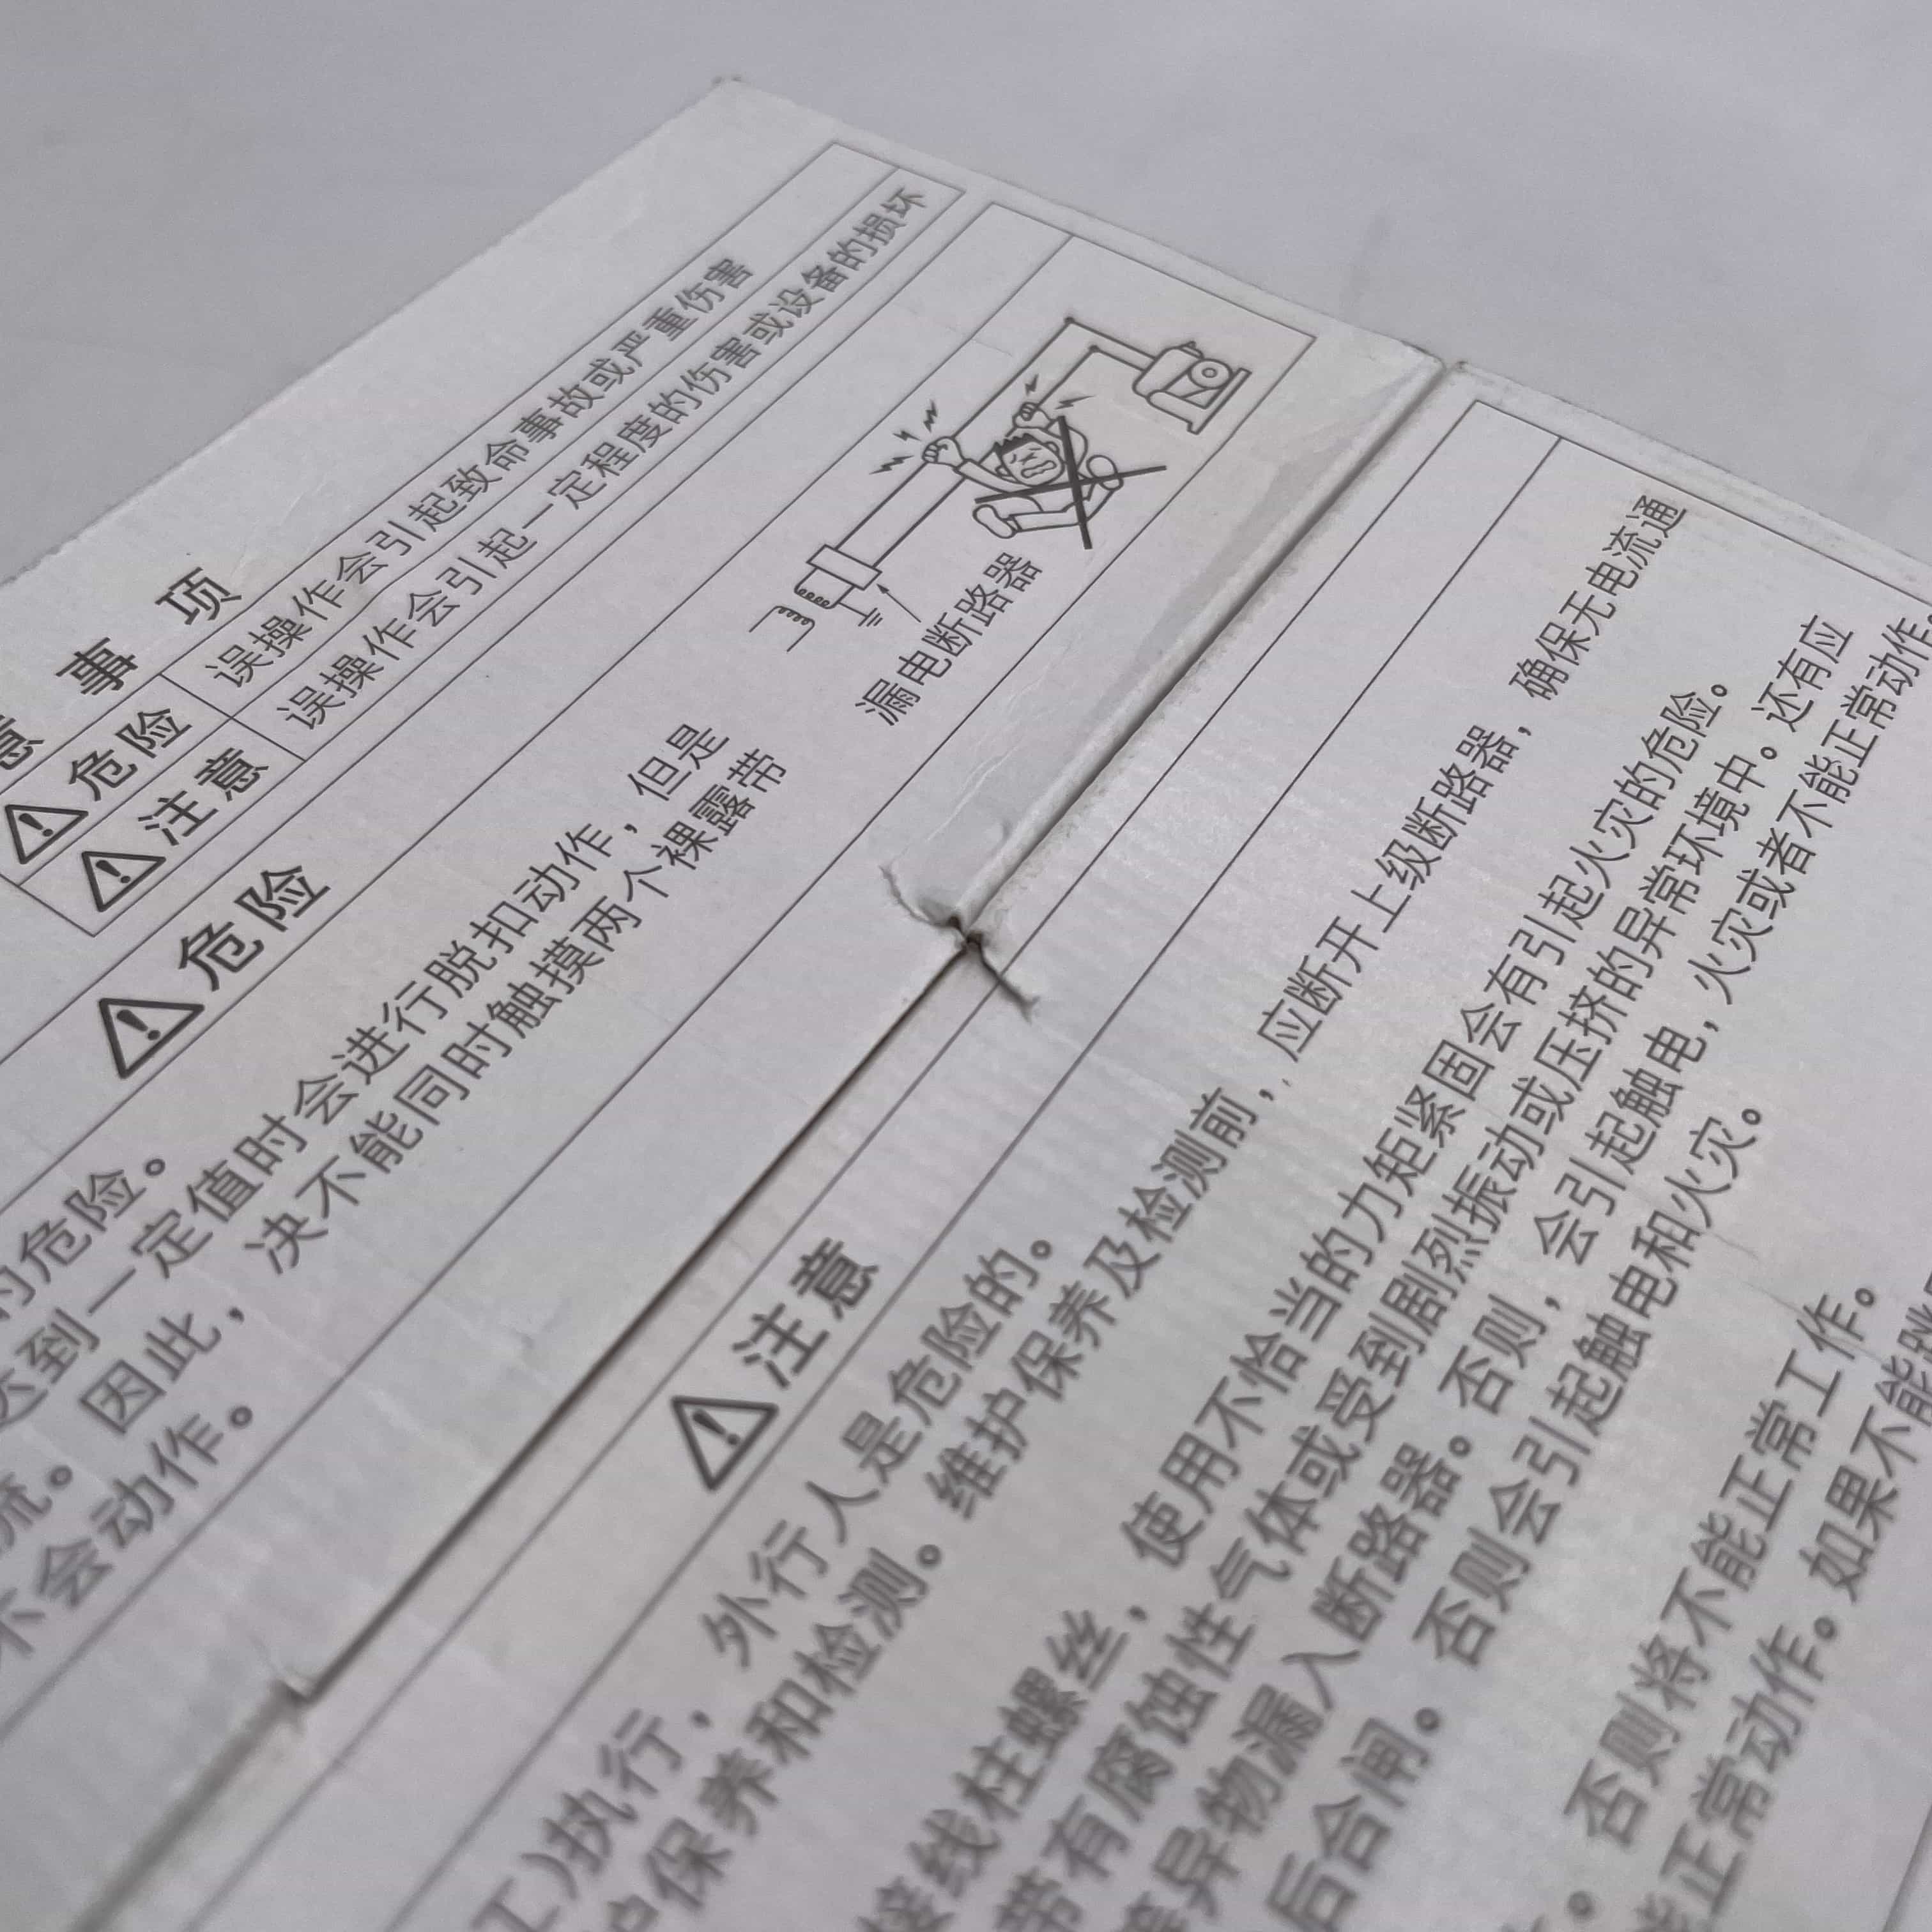 意事项
危险 误操作会引起致命事故或严重伤害
注意 误操作会引起一定程度的伤害或设备的损坏
危险
的危险。
达到一定值时会进行脱扣动作，但是
流。因此，决不能同时触摸两个裸露带
不会动作。
漏电断路器
注意
工)执行，外行人是危险的。
护保养和检测。维护保养及检测前，应断开上级断路器，确保无电流通
接线柱螺丝，使用不恰当的力矩紧固会有引起火灾的危险。
带有腐蚀性气体或受到剧烈振动或压挤的异常环境中。还有应
等异物漏入断路器。否则，会引起触电，火灾或者不能正常动作。
后合闸。否则会引起触电和火灾。
。否则将不能正常工作。
能正常动作。如果不能